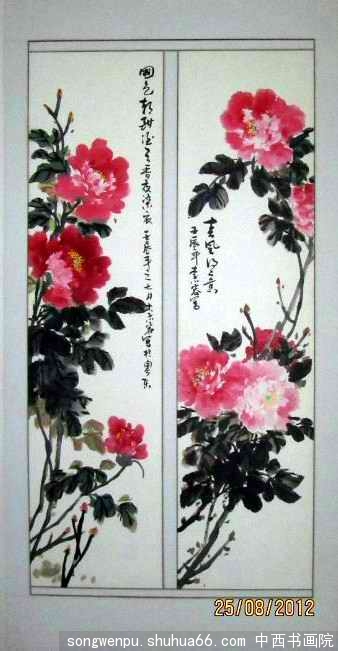 國色朝酣酒天香夜染衣 壬辰年之七月 寫於粵東
春風得意
壬辰年 寫
25/08/2012
songwenpu.shuhua66.com 中西书画院